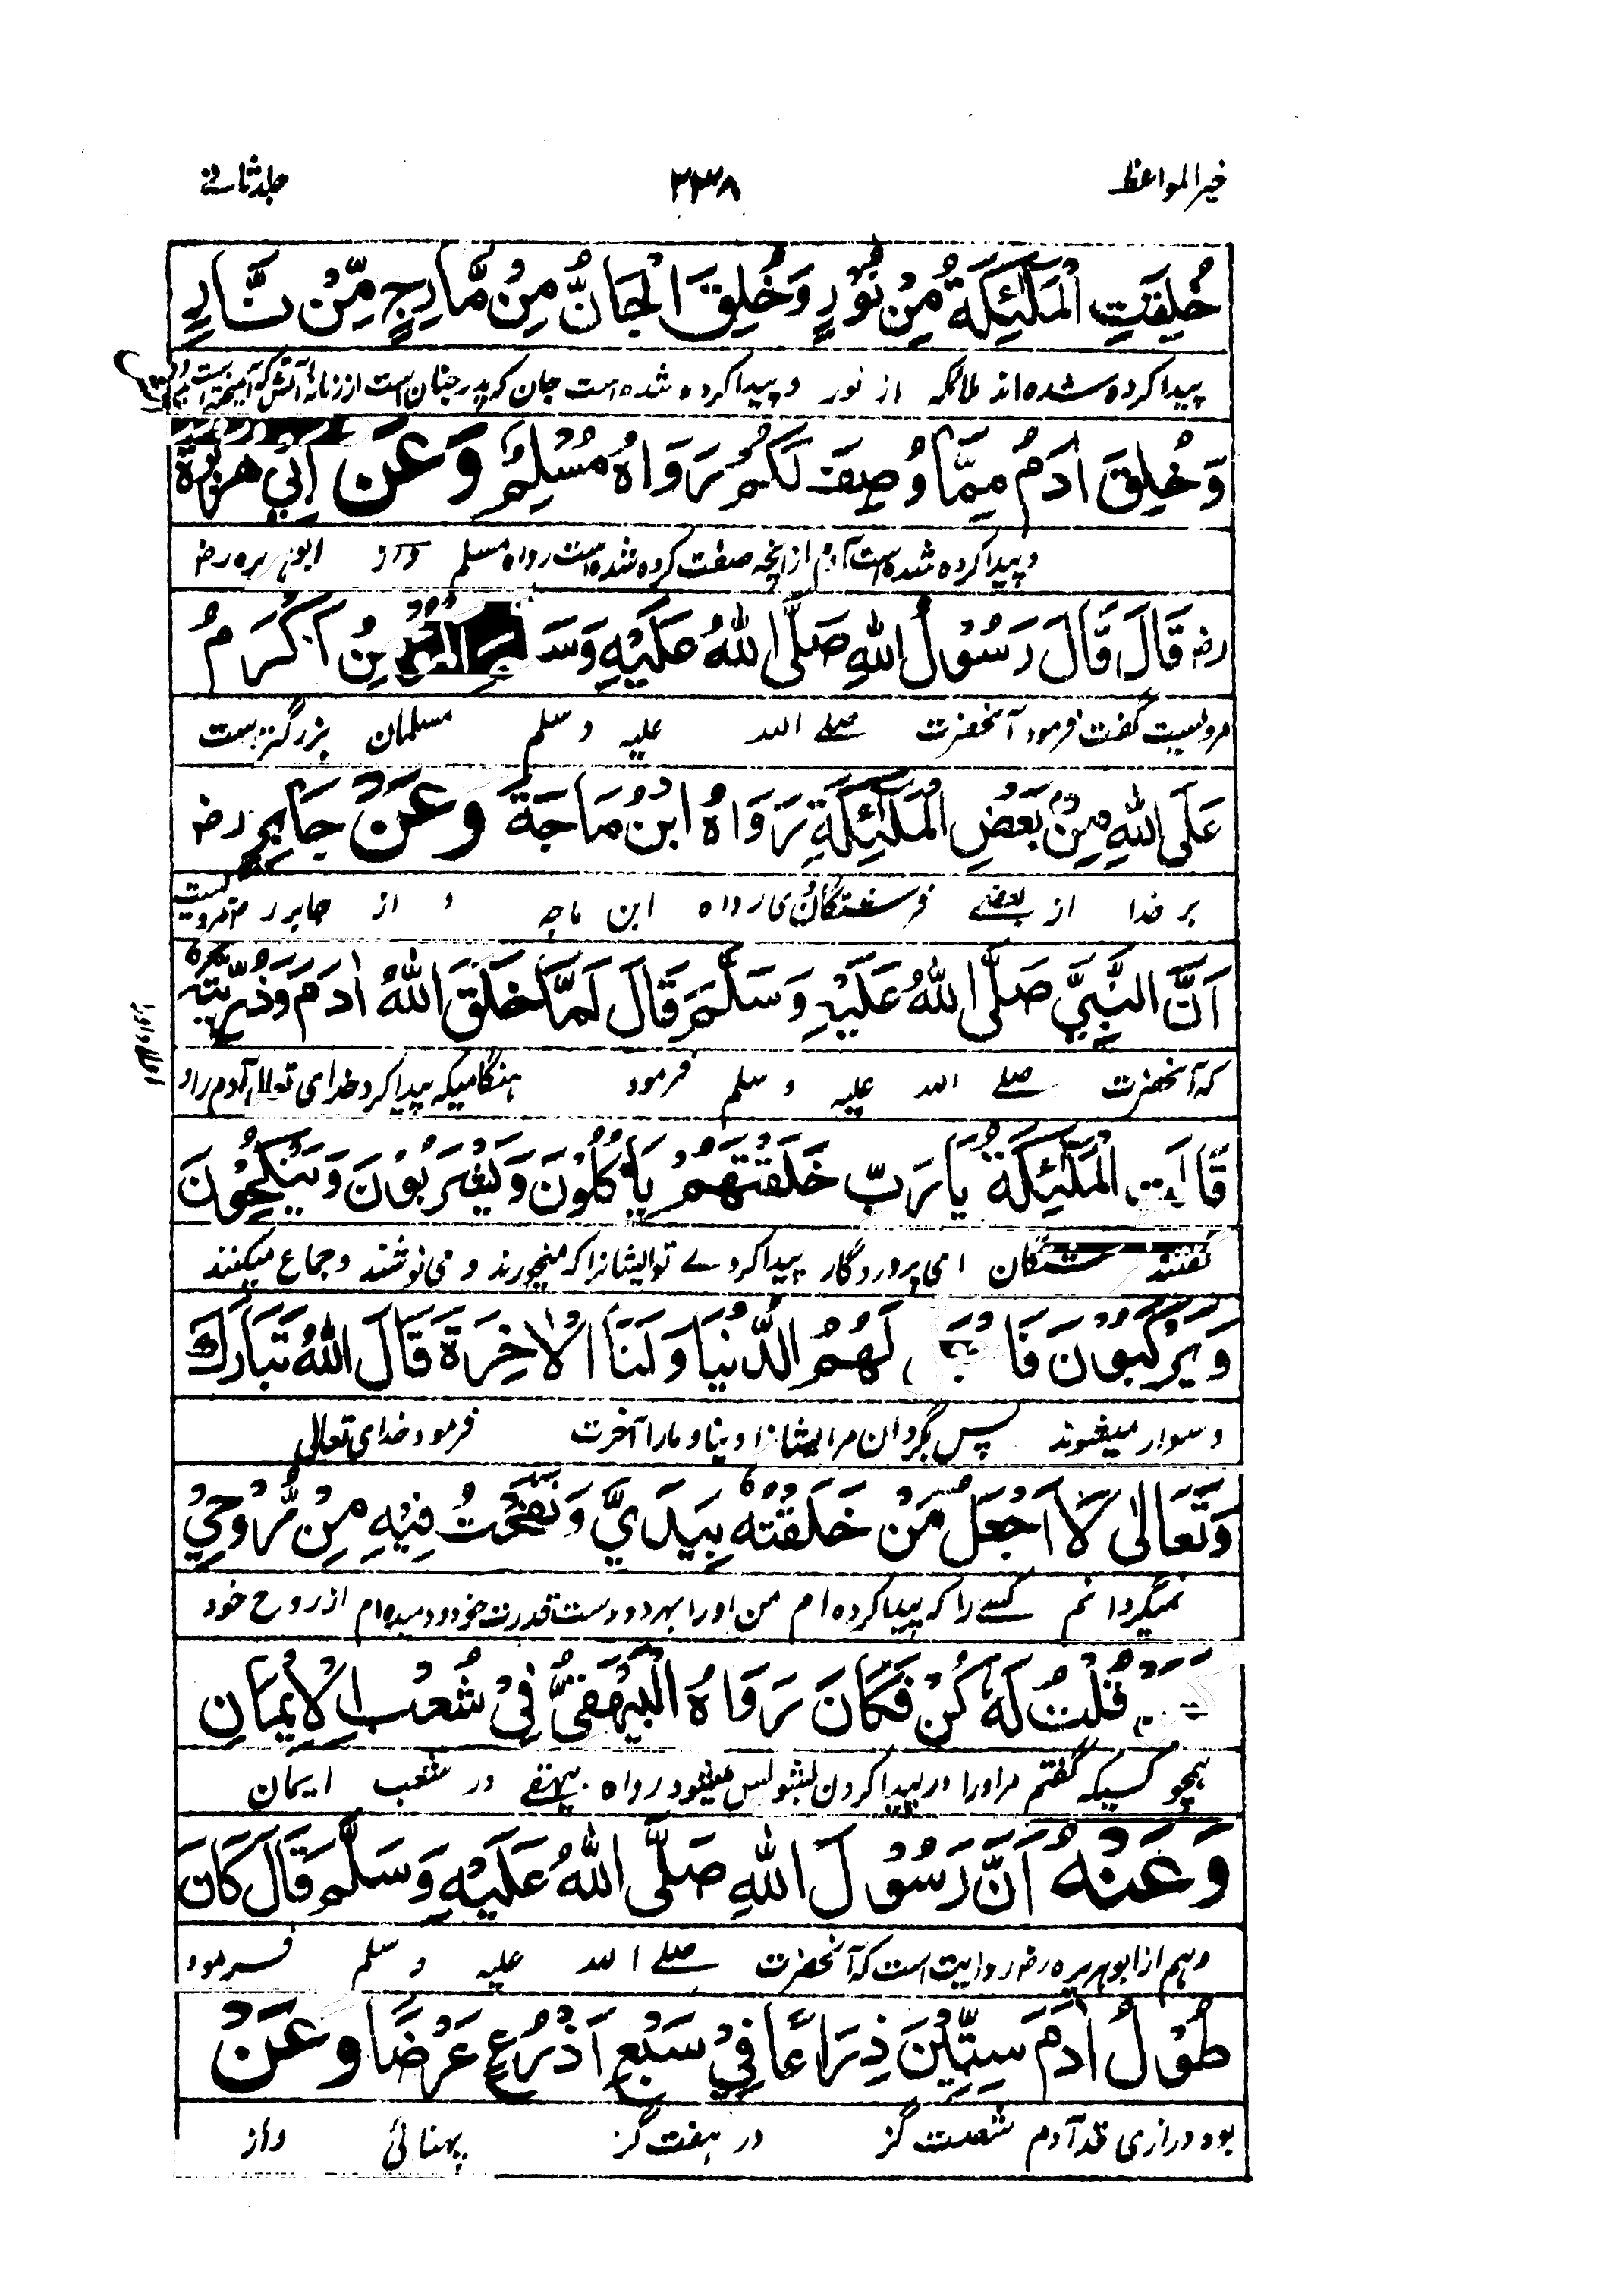 خیر المواعظ ۲۳۸ جلد ثانے
خُلِقَتِ الْمَلٰئِكَةُ مِنْ نُوْرٍ وَخُلِقَ الْجَانُّ مِنْ مَّارِجٍ مِّنْ نَّارٍ
پیدا کرده شده اند ملائکہ از نور و پیدا کرده شده است جان که پدر جنان است از زبانۂ آتش که آمیختہ است
وَخُلِقَ اٰدَمُ مِمَّا وُصِفَ لَكُمْ رَوَاهُ مُسْلِمٌ وَعَنْ اَبِيْ هُرَيْرَةَ
و پیدا کرده شده است آدم از انچہ صفت کرده شده است رواه مسلم و از ابوہریره رض
رض قَالَ قَالَ رَسُوْلُ اللهِ صَلَّى اللهُ عَلَيْهِ وَسَ اَكْرَمُ
مرویست گفت فرمود آنحضرت صلے اللہ علیہ وسلم مسلمان بزرگتر ست
عَلَى اللهِ مِنْ بَعْضِ الْمَلٰئِكَةِ رَوَاهُ ابْنُ مَاجَةَ وَعَنْ جَابِرٍ رض
بر خدا از بعضے فرشتگان رواه ابن ماجہ و از جابر رض مرویست
اَنَّ النَّبِيَّ صَلَّى اللهُ عَلَيْهِ وَسَلَّمَ قَالَ لَمَّا خَلَقَ اللهُ اٰدَمَ وَذُرِّيَّتَهٗ
کہ آنحضرت صلے اللہ علیہ وسلم فرمود ہنگامیکہ پیدا کرد خدای تعالی آدم را و
قَالَتِ الْمَلٰئِكَةُ يَا رَبِّ خَلَقْتَهُمْ يَأْكُلُوْنَ وَيَشْرَبُوْنَ وَيَنْكِحُوْنَ
گفتند شتگان ای پروردگار پیدا کردے تو ایشانرا کہ میخورند و می نوشند و جماع میکنند
وَيَرْكَبُوْنَ لَهُمُ الدُّنْيَا وَلَنَا الْاٰخِرَةَ قَالَ اللهُ تَبَارَكَ
و سوار میشوند پس بگردان مر ایشانرا دنیا و مارا آخرت فرمود خدای تعالی
وَتَعَالٰى لَا اَجْعَلُ مَنْ خَلَقْتُهٗ بِيَدَيَّ وَنَفَخْتُ فِيْهِ مِنْ رُّوْحِيْ
نمیگردانم کسے را کہ پیدا کرده ام من او را بہر دو دست قدرت خود و دمیده ام از روح خود
قُلْتُ لَهٗ كُنْ فَكَانَ رَوَاهُ الْبَيْهَقِيُّ فِيْ شُعَبِ الْاِيْمَانِ
ہمچو کسیکہ گفتم مر اورا در پیدا کردن بشو پس میشود رواه بیہقے در شعب ایمان
وَعَنْهُ اَنَّ رَسُوْلَ اللهِ صَلَّى اللهُ عَلَيْهِ وَسَلَّمَ قَالَ كَانَ
و ہم از ابو ہریره رض روایت است کہ آنحضرت صلے اللہ علیہ وسلم فرمود
طُوْلُ اٰدَمَ سِتِّيْنَ ذِرَاعًا فِيْ سَبْعِ اَذْرُعٍ عَرْضًا وَعَنْ
بود درازی قد آدم شصت گز در ہفت گز پہنائی و از